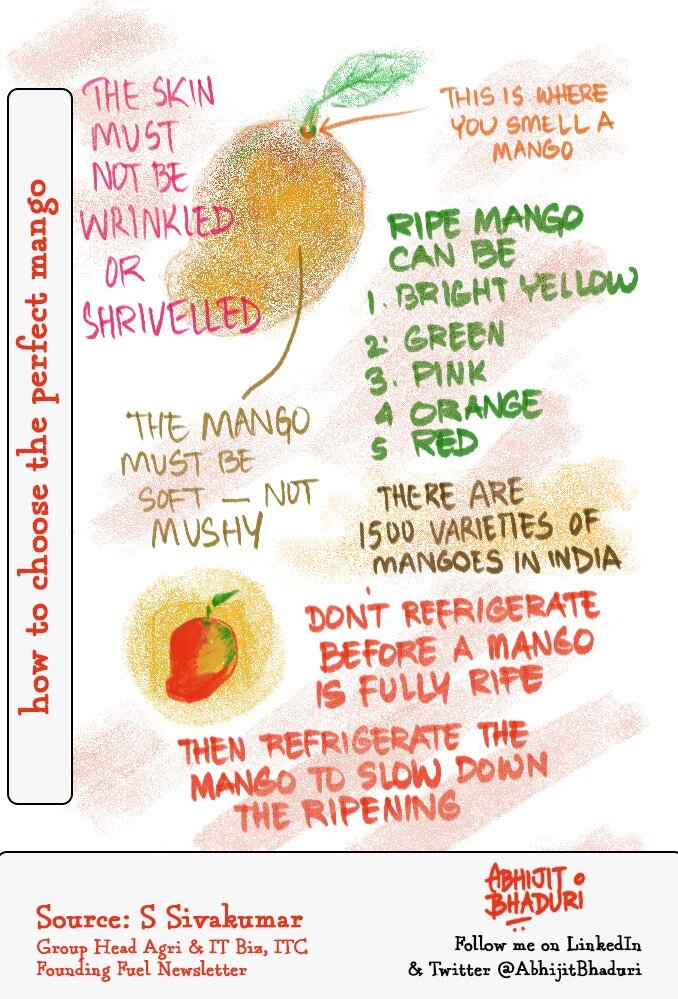 how to choose the perfect mango
THE SKIN
MUST
NOT BE
WRINKLED
OR
SHRIVELLED
THIS IS WHERE
YOU SMELL A
MANGO
RIPE MANGO
CAN BE
1. BRIGHT YELLOW
2. GREEN
3. PINK
4 ORANGE
5 RED
THE MANGO
MUST BE
SOFT — NOT
MUSHY
THERE ARE
1500 VARIETIES OF
MANGOES IN INDIA
DON'T REFRIGERATE
BEFORE A MANGO
IS FULLY RIFE
THEN REFRIGERATE THE
MANGO TO SLOW DOWN
THE RIPENING
Source: S Sivakumar
Group Head Agri & IT Biz, ITC
Founding Fuel Newsletter
ABHIJIT
BHADURI
Follow me on LinkedIn
& Twitter @AbhijitBhaduri